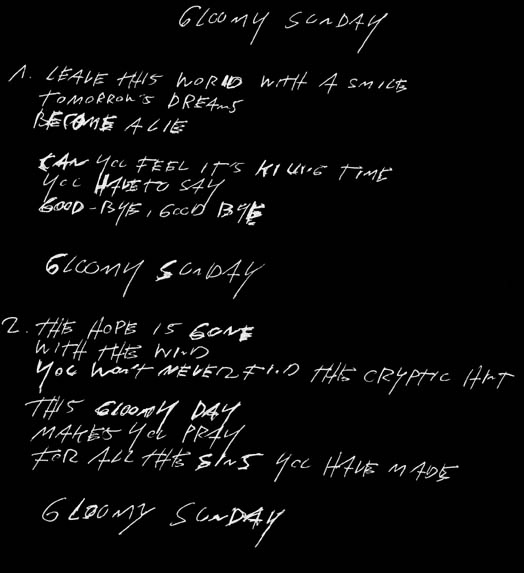 GLOOMY SUNDAY
1. LEAVE THIS WORLD WITH A SMILE
TOMORROW'S DREAMS
BECOME A LIE
CAN YOU FEEL IT'S KILLING TIME
YOU HAVE TO SAY
GOOD-BYE, GOOD BYE
GLOOMY SUNDAY
2. THE HOPE IS GONE
WITH THE WIND
YOU WON'T NEVER FIND THE CRYPTIC HINT
THIS GLOOMY DAY
MAKES YOU PRAY
FOR ALL THE SINS YOU HAVE MADE
GLOOMY SUNDAY